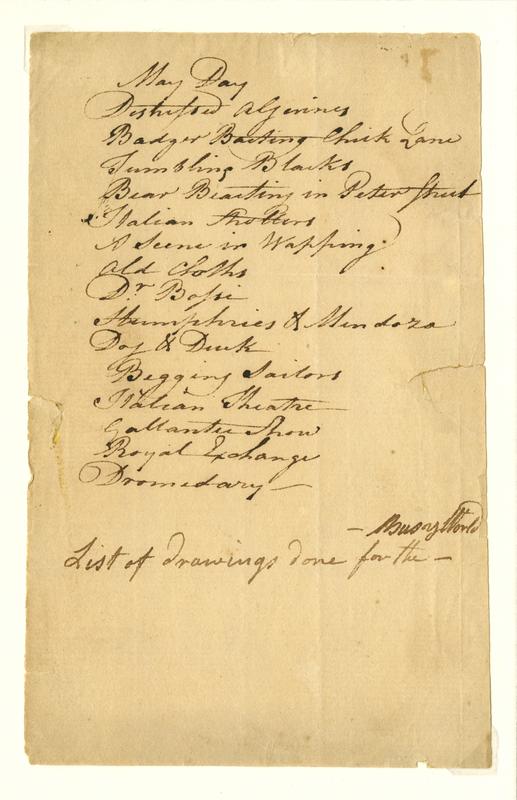 May Day
Distressed Algerines
Badger Baiting Chick Lane
Tumbling Blacks
Bear Beaiting in Peter Street
Italian
A Scene in Wapping
Old Cloths
Dr Bossi
Humphries & Mendoza
Dog & Duck
Begging Sailors
Italian Theatre
Gallantee Show
Royal Exchange
Dromedary —
— Busy World
List of drawings done for the —